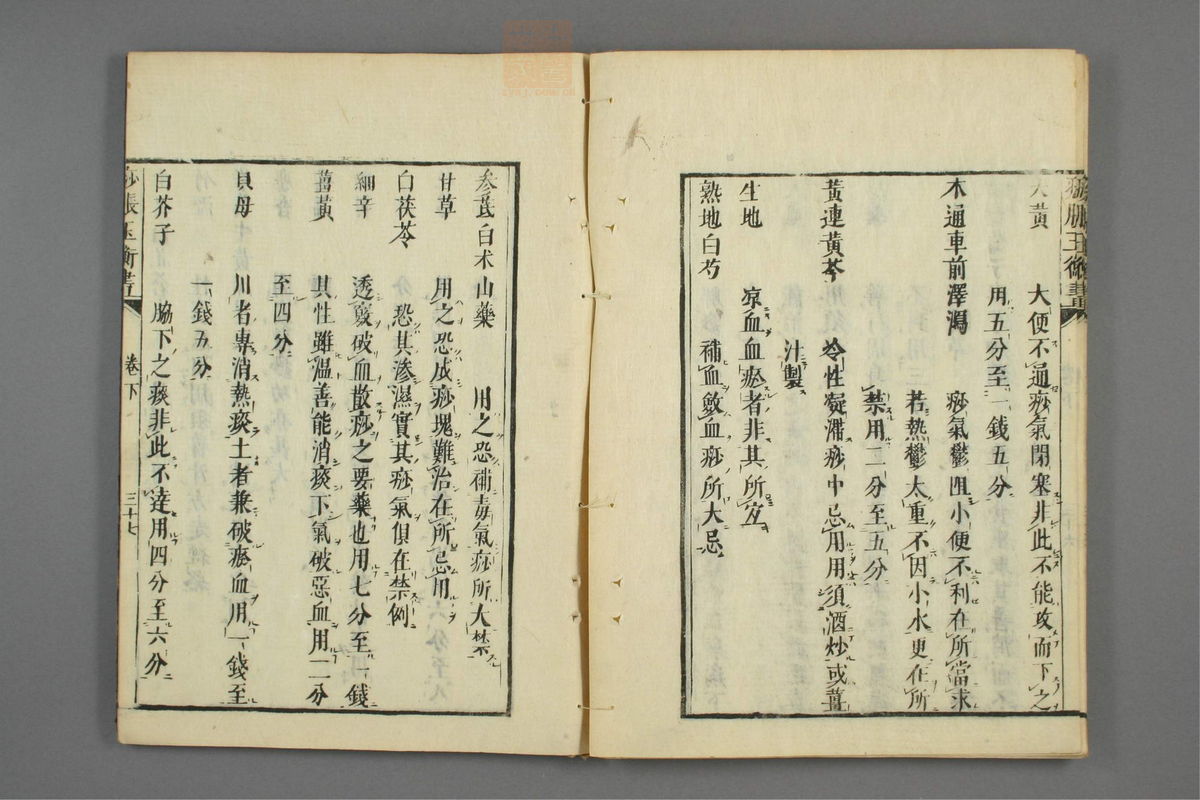 痧脹玉衡書
大黃　大便不通痧氣閉塞非此不能攻而下之
用五分至一錢五分
木通車前澤瀉　痧氣鬱阻小便不利在所當求
若熱鬱太重不因小水更在所
禁用二分至五分
黃連黃芩　冷性凝滯痧中忌用用須酒炒或薑
汁製
生地　凉血血瘀者非其所宜
熟地白芍　補血斂血痧所大忌
參芪白朮山藥　用之恐補毒氣痧所大禁
甘草　用之恐成痧塊難治在所忌用
白茯苓　恐其滲濕實其痧氣俱在禁例
細辛　透竅破血散痧之要藥也用七分至一錢
薑黃　其性雖溫善能消痰下氣破惡血用二分
至四分
貝母　川者專消熱痰土者兼破瘀血用一錢至
一錢五分
白芥子　脇下之痰非此不達用四分至六分
痧脹玉衡書　卷下　三十七